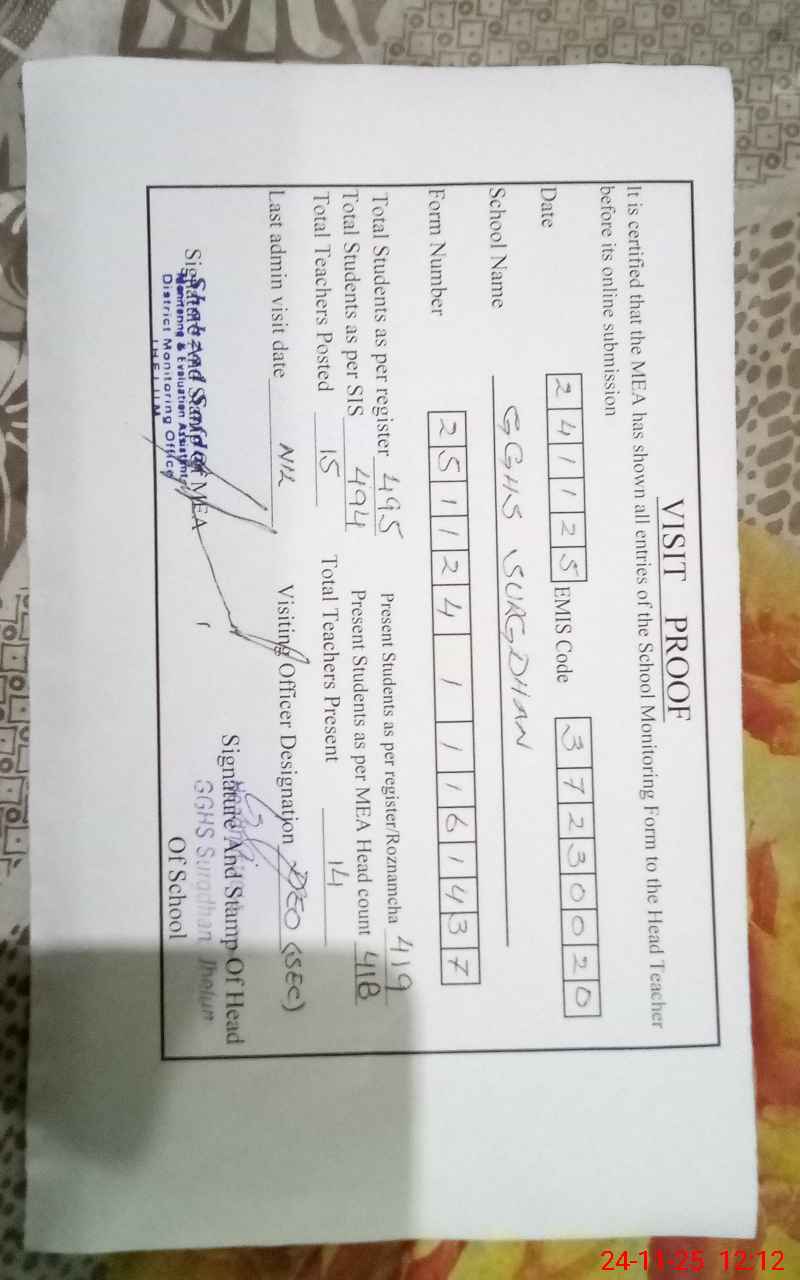 VISIT PROOF
It is certified that the MEA has shown all entries of the School Monitoring Form to the Head Teacher
before its online submission
Date 241125 EMIS Code 37230020
School Name GGHS SURGDHAN
Form Number 25112411161437
Total Students as per register 495 Present Students as per register/Roznamcha 419
Total Students as per SIS 494 Present Students as per MEA Head count 418
Total Teachers Posted 15 Total Teachers Present 14
Last admin visit date Nil Visiting Officer Designation DEO (SEC)
Signature And Stamp Of MEA Signature And Stamp Of Head
Of School
Shahzad Safdar
Monitoring & Evaluation Assistant
District Monitoring Office
JHELUM
GGHS Surgdhan Jhelum
24-11-25 12:12